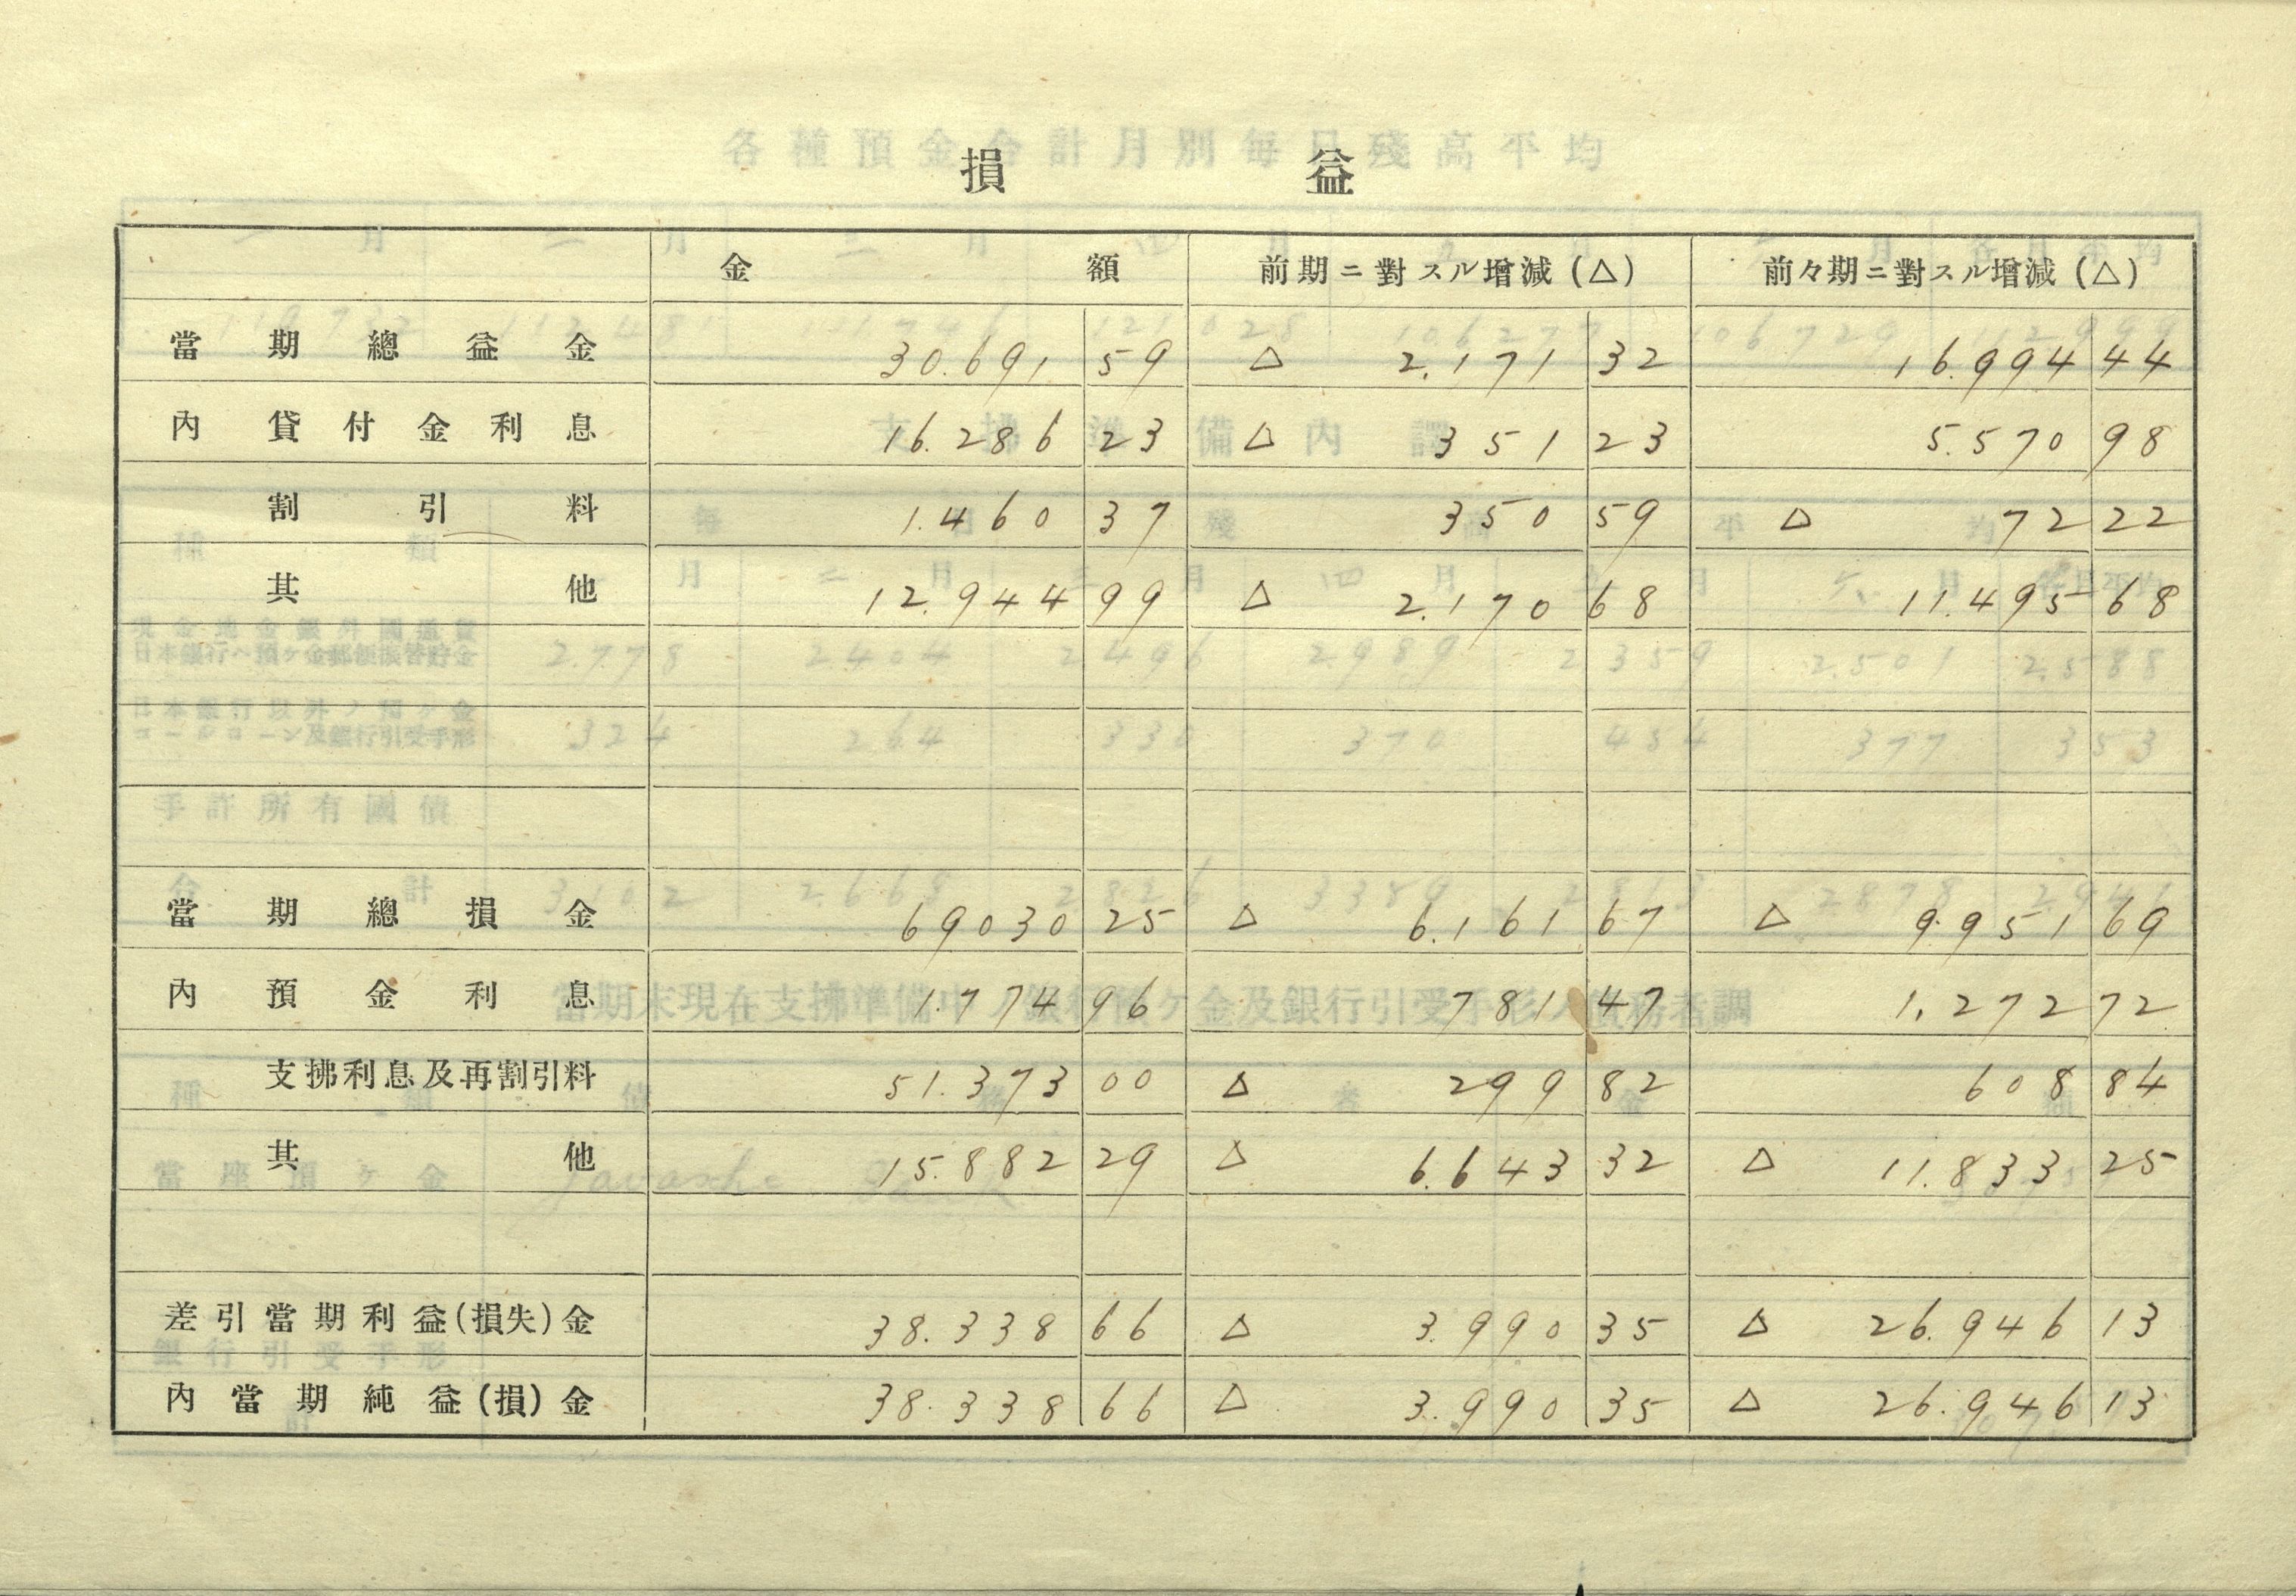 損益
金額 前期ニ對スル増減(△) 前々期ニ對スル増減(△)
當期總益金 30.691 59 △ 2.171 32 16.994 44
内 貸付金利息 16.286 23 △ 351 23 5.570 98
割引料 1.460 37 350 59 △ 72 22
其他 12.944 99 △ 2.170 68 11.495 68
當期總損金 69030 25 △ 6.161 67 △ 9.951 69
内 預金利息 1.774 96 781 47 1.272 72
支拂利息及再割引料 51.373 00 △ 299 82 608 84
其他 15.882 29 △ 6.643 32 △ 11.833 25
差引當期利益(損失)金 38.338 66 △ 3.990 35 △ 26.946 13
内當期純益(損)金 38.338 66 △ 3.990 35 △ 26.946 13